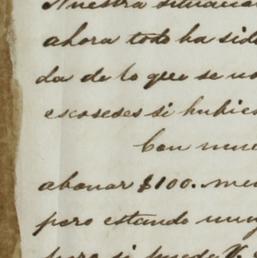 Nuestra situacion
ahora todo ha sido
da de lo que se no
escoseses si hubie
Con muc
abonar $100. men
pero estando muy
pero si puede V.